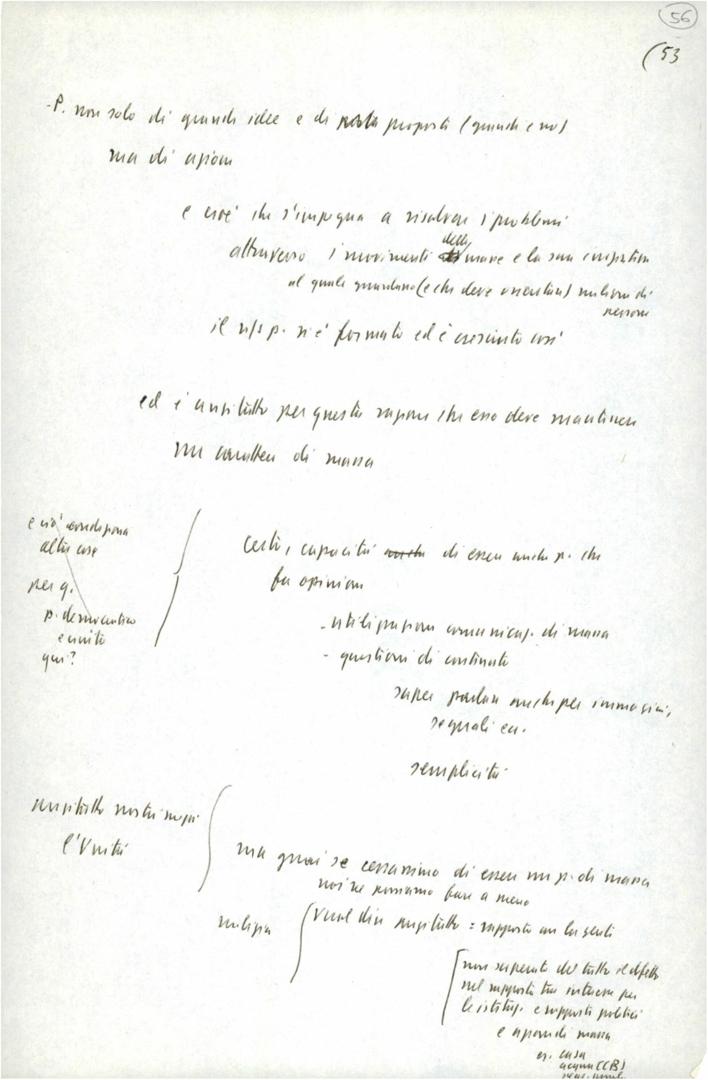 56
(53
-P. non solo di grandi idee e di proposte (grandi e no)
ma di azioni
e cioè che s'impegna a risolvere i problemi
attraverso i movimenti delle masse e la sua
al quale guardano (e che deve orientare) milioni di
persone
il n/s p. si è formato ed è cresciuto così
ed è anzitutto per questa ragione che esso deve mantenere
un carattere di massa
e ciò
altre cose
per q.
p. democratico
e unito
qui?
Certo, capacità anche di essere anche p. che
fa opinione
- utilizzazione comunicaz. di massa
- questioni di contenuto
saper parlare anche per immagini,
segnali ecc.
semplicità
anzitutto nostri
l'Unità
ma guai se cessassimo di essere un p. di massa
noi ne possiamo fare a meno
milizia
Vuol dire anzitutto = rapporto con la gente
non superato del tutto il difetto
nel rapporto tra iniziative per
le istituz. e rapporti politici
e azioni di massa
es. casa
acqua (CB)